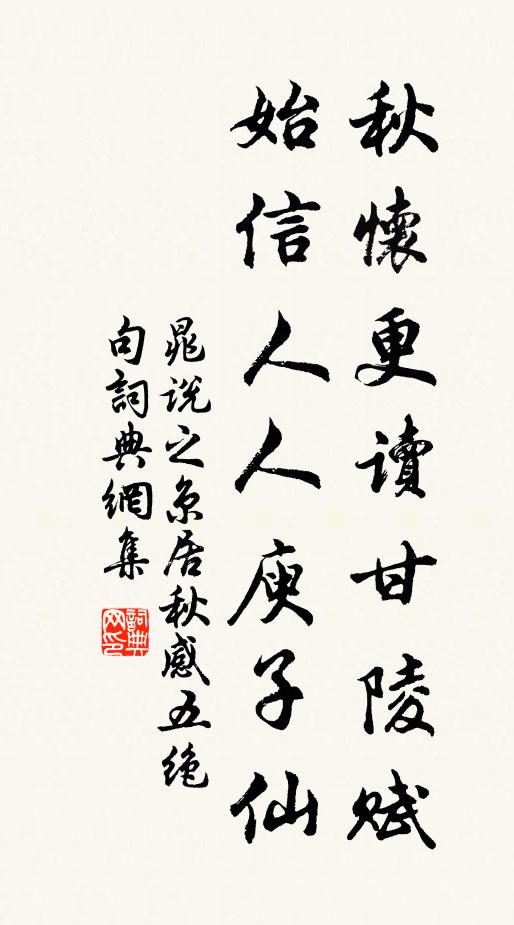 秋懷更讀甘陵賦
始信人人庾子仙
晁説之京居秋感五絶
句詞典網集
詞典
网印